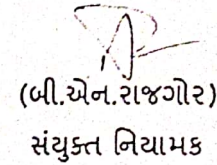 (બી.એન.રાજગોર)
સંયુક્ત નિયામક